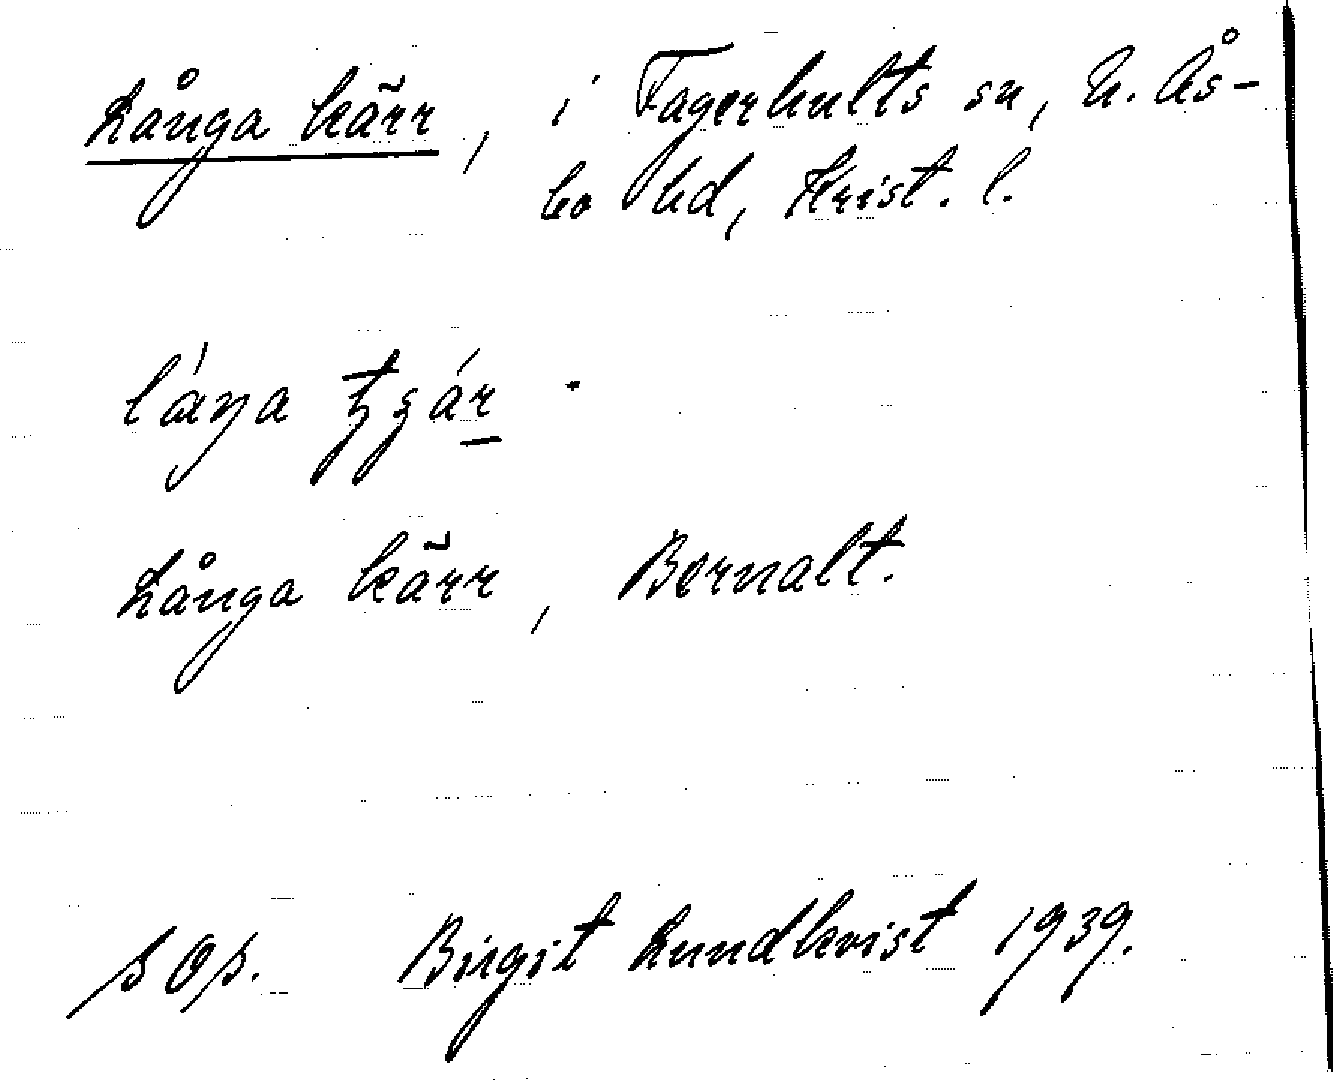 Långa kärr, i Fagerhults sn, N. Ås-
bo hd, Krist. l.
Långa kärr, Bernalt.
Birgit Lundkvist 1939.